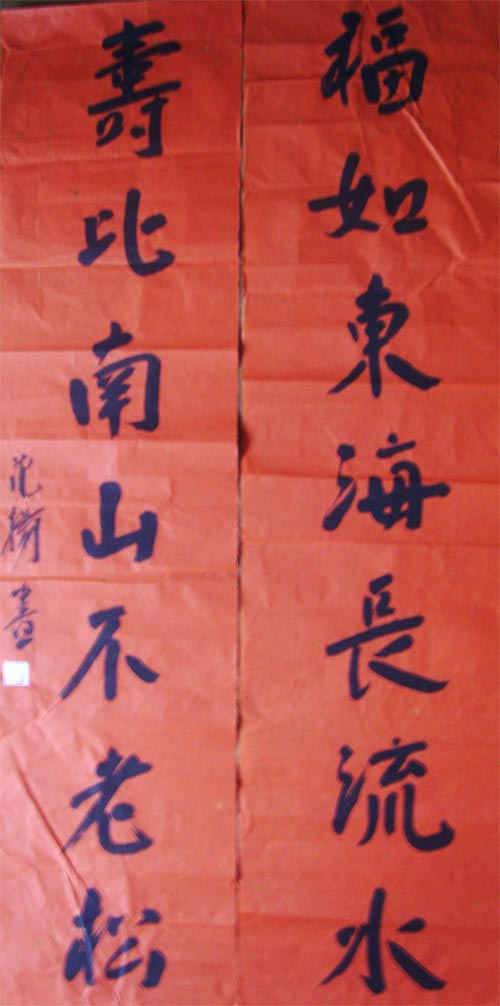 福如東海長流水
壽比南山不老松
書